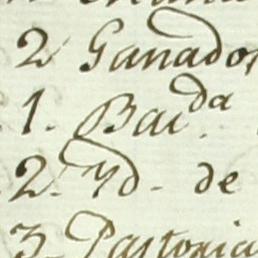 2 Ganados
1. Bai.da
2. Yd. de
3. Pastoria